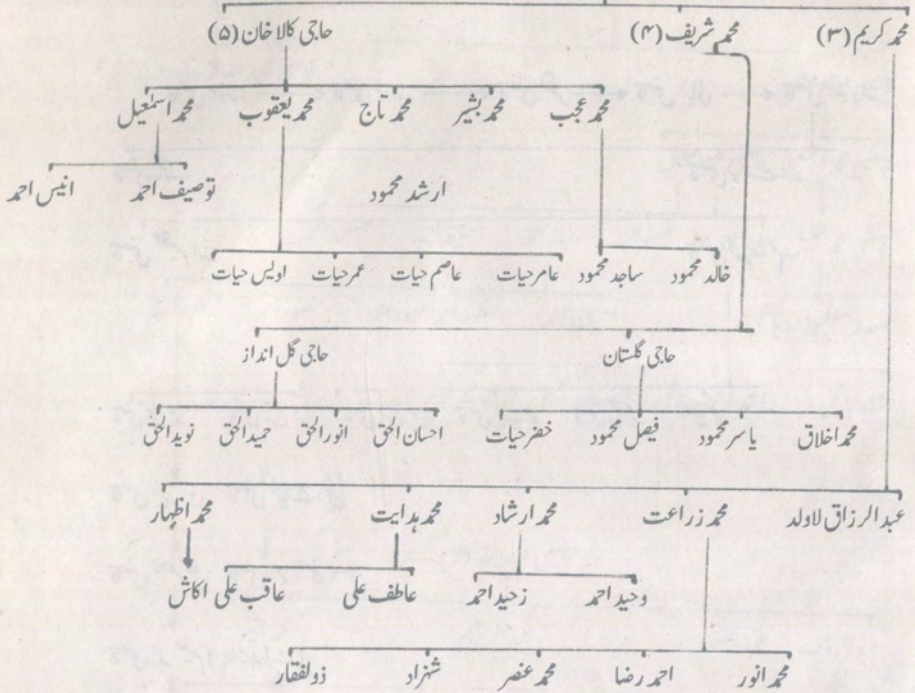 محمد کریم (۳) محمد شریف (۴) حاجی کالا خان (۵)
محمد عجب محمد بشیر محمد تاج محمد یعقوب محمد اسمٰعیل
ارشد محمود توصیف احمد انیس احمد
خالد محمود ساجد محمود عامر حیات عاصم حیات عمر حیات اویس حیات
حاجی گلستان حاجی گل انداز
محمد اخلاق یاسر محمود فیصل محمود خضر حیات احسان الحق انور الحق حمید الحق نوید الحق
عبدالرزاق لاولد محمد زراعت محمد ارشاد محمد ہدایت محمد اظہار
وحید احمد زحید احمد عاطف علی عاقب علی اکاش
محمد انور احمد رضا محمد عنصر شہزاد ذولفقار